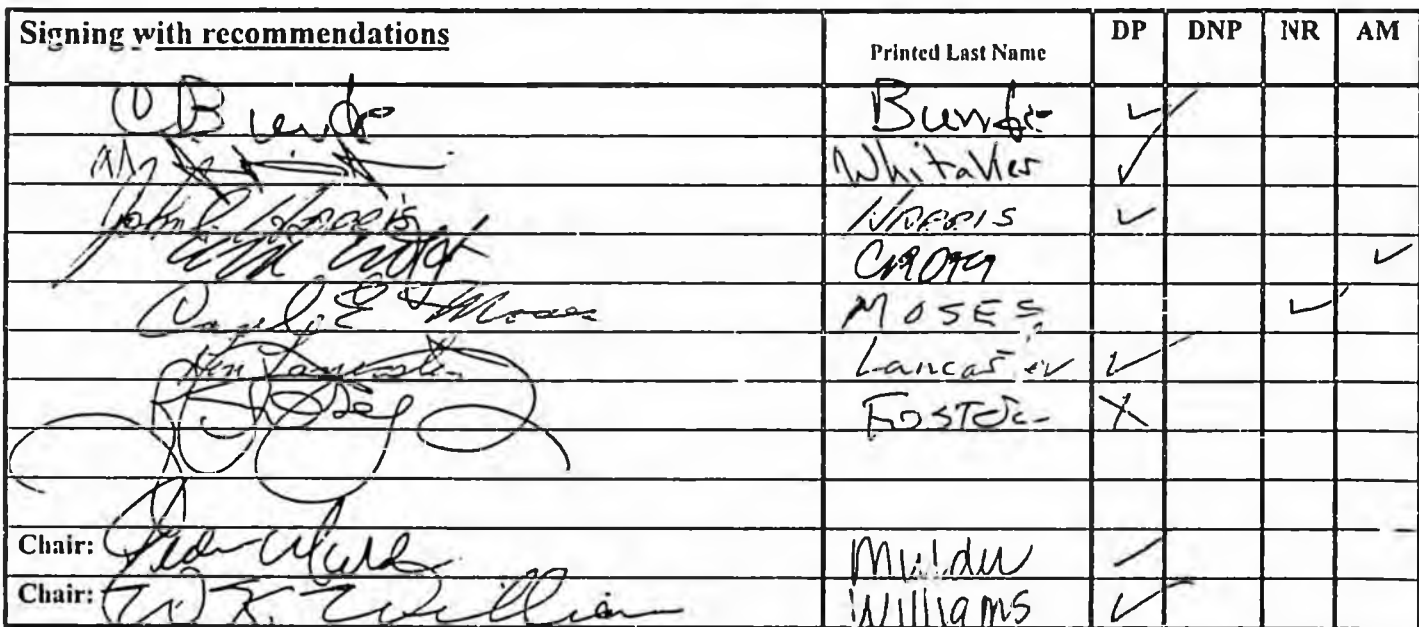 Signing with recommendations Printed Last Name DP DNP NR AM
Bunde ✓
Whitaker ✓
John Harris HARRIS ✓
Croft ✓
E Moses MOSES ✓
Ken Lancaster Lancaster ✓
Foster X
Chair: Mulder ✓
Chair: W. K. Williams Williams ✓